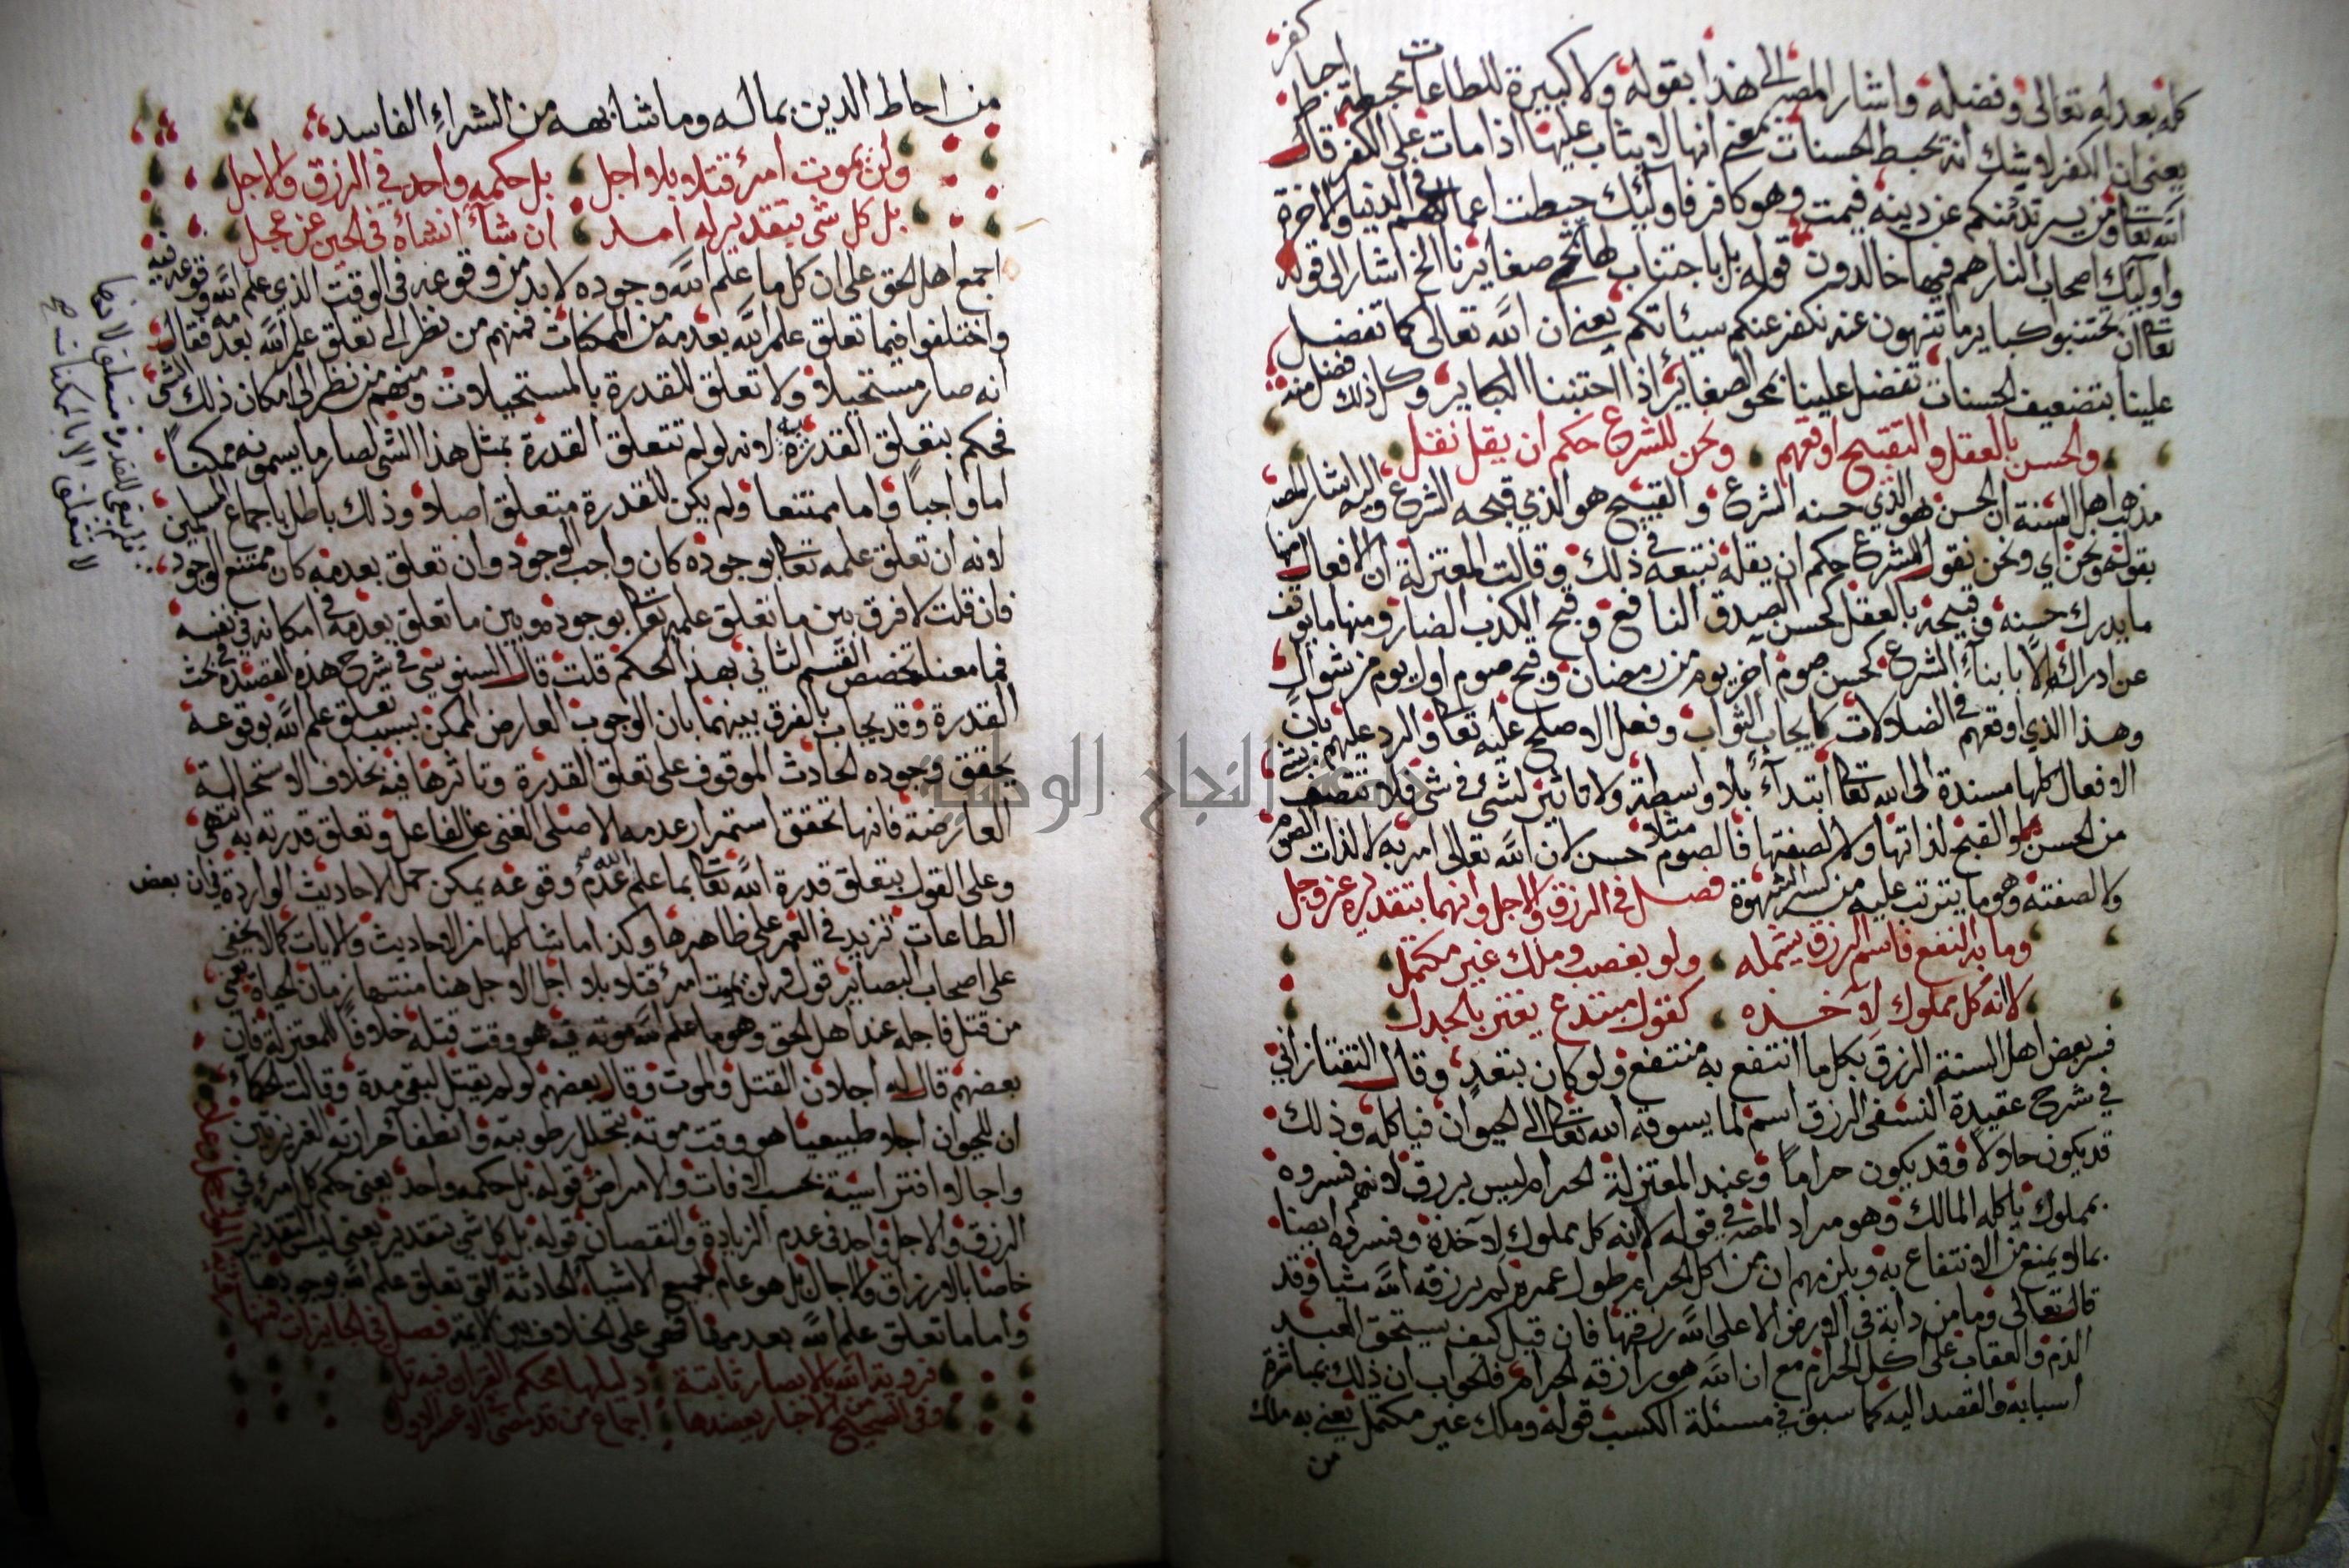 كله بعدله تعالى وفضله واشار المص الى هذا بقوله ولا كبيرة للطاعات محبطة
يعني ان الكفر لا شك انه يحبط الحسنات بمعني انها لا يثاب عليها اذا مات على الكفر قال
الله تعا ومن يرتدد منكم عن دينه فيمت وهو كافر فاوليك حبطت اعمالهم في الدنيا والاخرة
واوليك اصحاب النار هم فيها خالدون قوله بل باجتناب لها تمحى صغايرنا الخ اشار الى قوله
تعا ان تجتنبوا كباير ما تنهون عنه نكفر عنكم سيئاتكم يعني ان الله تعالى كما تفضل
علينا بتضعيف الحسنات تفضل علينا بمحو الصغاير اذا اجتنبنا الكباير وكل ذلك فضل منه
والحسن بالعقل والتقبيح اوقعهم ونحن للشرع حكم ان يقل نقل
مذهب اهل السنة ان الحسن هو الذي حسنه الشرع والقبيح هو الذي قبحه الشرع واليه اشار المص
بقوله ونحن اي ونحن نقول للشرع حكم ان يقله نتبعه في ذلك وقالت المعتزلة ان الافعال منها
ما يدرك حسنه وقبحه بالعقل كحسن الصدق النافع وقبح الكذب الضار ومنها ما يوقف
عن ادراكه الا بانباء الشرع كحسن صوم اخر يوم من رمضان وقبح صوم اول يوم من شوال
وهذا الذي اوقعهم في الضلالات كايجاب الثواب وفعل الاصلح عليه تعا والرد عليهم بان
الافعال كلها مسندة الى الله تعا ابتداء بلا واسطة ولا تاثير لشيء في شيء فلا تتصف بشيء
من الحسن والقبح لذاتها ولا لصفتها فالصوم مثلا حسن لان الله تعالى امر به لا لذات الصوم
ولا لصفته وهو ما يترتب عليه من كسر الشهوة فصل في الرزق والاجل وانهما بتقديره عز وجل
وما به النفع فاسم الرزق يشمله ولو بغصب وملك غير مكتمل
لا انه كل مملوك لآخذه كقول مبتدع يغتر بالجدل
فسر بعض اهل السنة الرزق بكل ما انتفع به منتفع ولو كان بتعد وقال التفتازاني
في شرح عقيدة النسفي الرزق اسم لما يسوقه الله تعا الى الحيوان فياكله وذلك
قد يكون حلالا وقد يكون حراما وعند المعتزلة الحرام ليس برزق لانهم فسروه
بمملوك ياكله المالك وهو مراد المص في قوله لا انه كل مملوك لآخذه وفسروه ايضا
بما لا يمنع من الانتفاع به ويلزمهم ان من اكل الحرام طول عمره لم يرزقه الله شيا وقد
قال تعالى وما من دابة في الارض الا على الله رزقها فان قيل كيف يستحق العبد
الذم والعقاب على اكل الحرام مع ان الله هو رازقه الحرام فالجواب ان ذلك بمباشرة
اسبابه والقصد اليه كما سبق في مسئلة الكسب قوله وملك غير مكتمل يعني به ملك
من
من احاط الدين بماله وما شابهه من الشراء الفاسد
ولن يموت امرؤ قتلا بلا اجل بل حكمه واحد في الرزق والاجل
بل كل شي بتقدير له امد ان شاء انشاه في الحين عن عجل
اجمع اهل الحق على ان كل ما علم الله وجوده لا بد من وقوعه في الوقت الذي علم الله وقوعه فيه
واختلفوا فيما تعلق علم الله بعدمه من الممكنات فمنهم من نظر الى تعلق علم الله بعدمه فقال
انه صار مستحيلا ولا تعلق للقدرة بالمستحيلات ومنهم من نظر الى امكان ذلك الشي
فحكم بتعلق القدرة به لانه لو لم تتعلق القدرة بمثل هذا الشي لصار ما يسمونه ممكنا
اما واجبا واما ممتنعا ولم يكن للقدرة متعلق اصلا وذلك باطل باجماع المسلمين
لانه ان تعلق علمه تعا بوجوده كان واجب الوجود وان تعلق بعدمه كان ممتنع الوجود
فان قلت لا فرق بين ما تعلق علمه تعا بوجوده وبين ما تعلق بعدمه في امكانه في نفسه
فما معنا تخصص القسم الثاني بهذا الحكم قلت قال السنوسي في شرح هذه القصيدة في بحث
القدرة وقد يجاب بالفرق بينهما بان الوجوب العارض للممكن بسبب تعلق علم الله بوقوعه
يحقق وجوده الحادث الموقوف على تعلق القدرة وتاثرها فيه بخلاف الاستحالة
العارضة فانها تحقق استمرار عدمه الاصلى الغنى عن الفاعل وتعلق قدرته به انتهى
وعلى القول بتعلق قدرة الله تعا بما علم الله عدم وقوعه يمكن حمل الاحاديث الواردة في ان بعض
الطاعات تزيد في العمر على ظاهرها وكذا ما شاكلها من الاحاديث والايات كما لا يخفى
على اصحاب البصاير قوله ولن يموت امرؤ قتلا بلا اجل الاجل هنا منتها زمان الحياة يعني
من قتل فاجله عند اهل الحق وهو ما علم الله موته فيه هو وقت قتله خلافا للمعتزلة فان
بعضهم قال له اجلان القتل والموت وقال بعضهم لو لم يقتل لبقي مدة وقالت الحكماء
ان للحيوان اجلا طبيعيا هو وقت موته بتحلل رطوبته وانطفاء حرارته الغريزيتين
واجالا اختراميه بحسب الافات والامراض قوله بل حكمه واحد يعني حكم كل امرئ في
الرزق والاجل واحد في عدم الزيادة والنقصان قوله بل كل شي بتقدير يعني ليس التقدير
خاصا بالارزاق والاجال بل هو عام لجميع الاشياء الحادثة التي تعلق علم الله بوجودها
واما ما تعلق علم الله بعدمها فهي على الخلاف بين الايمة فصل في الجايزات منها
فرؤية الله بالابصار ثابتة دليلها محكم القران فيه تل
وفي الصحيح من الاخبار يعضدها اجماع من قد مضى في الاعصر الاول